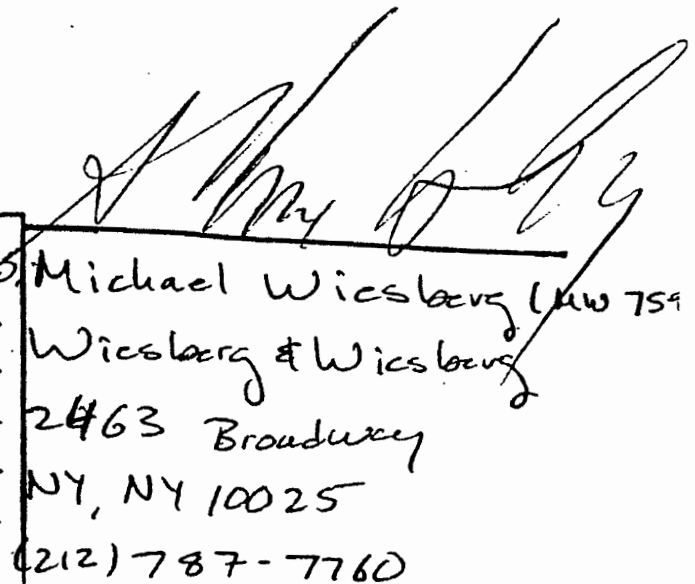 Michael Wiesberg (MW 759
Wiesberg & Wiesberg
2463 Broadway
NY, NY 10025
(212) 787-7760